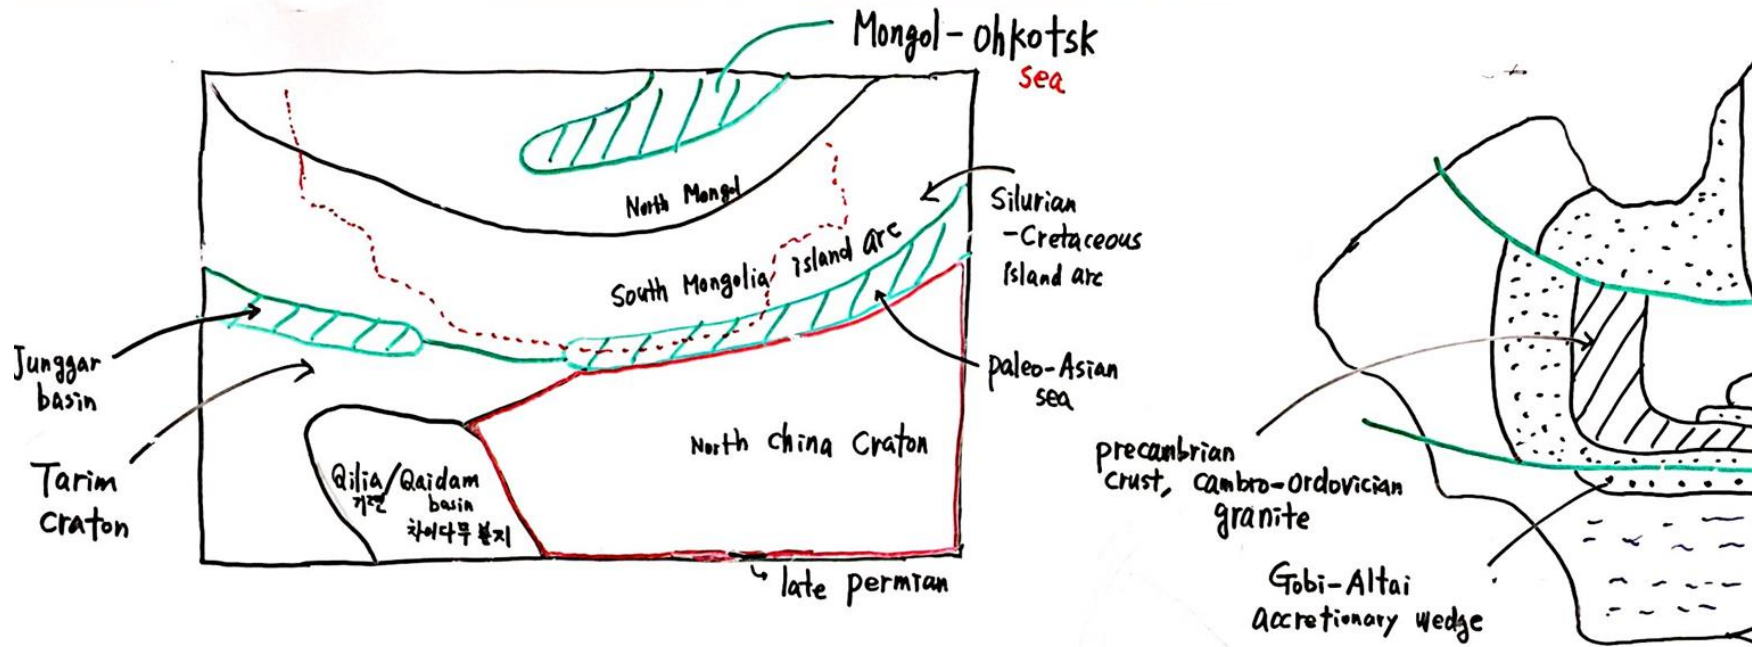 Mongol-Ohkotsk
sea
North Mongol
South Mongolia island arc
Silurian
-Cretaceous
Island arc
Junggar
basin
paleo-Asian
sea
Tarim
craton
North china Craton
Qilia/Qaidam
기련 basin
차이다무 분지
late permian
precambrian
crust, cambro-ordovician
granite
Gobi-Altai
accretionary wedge